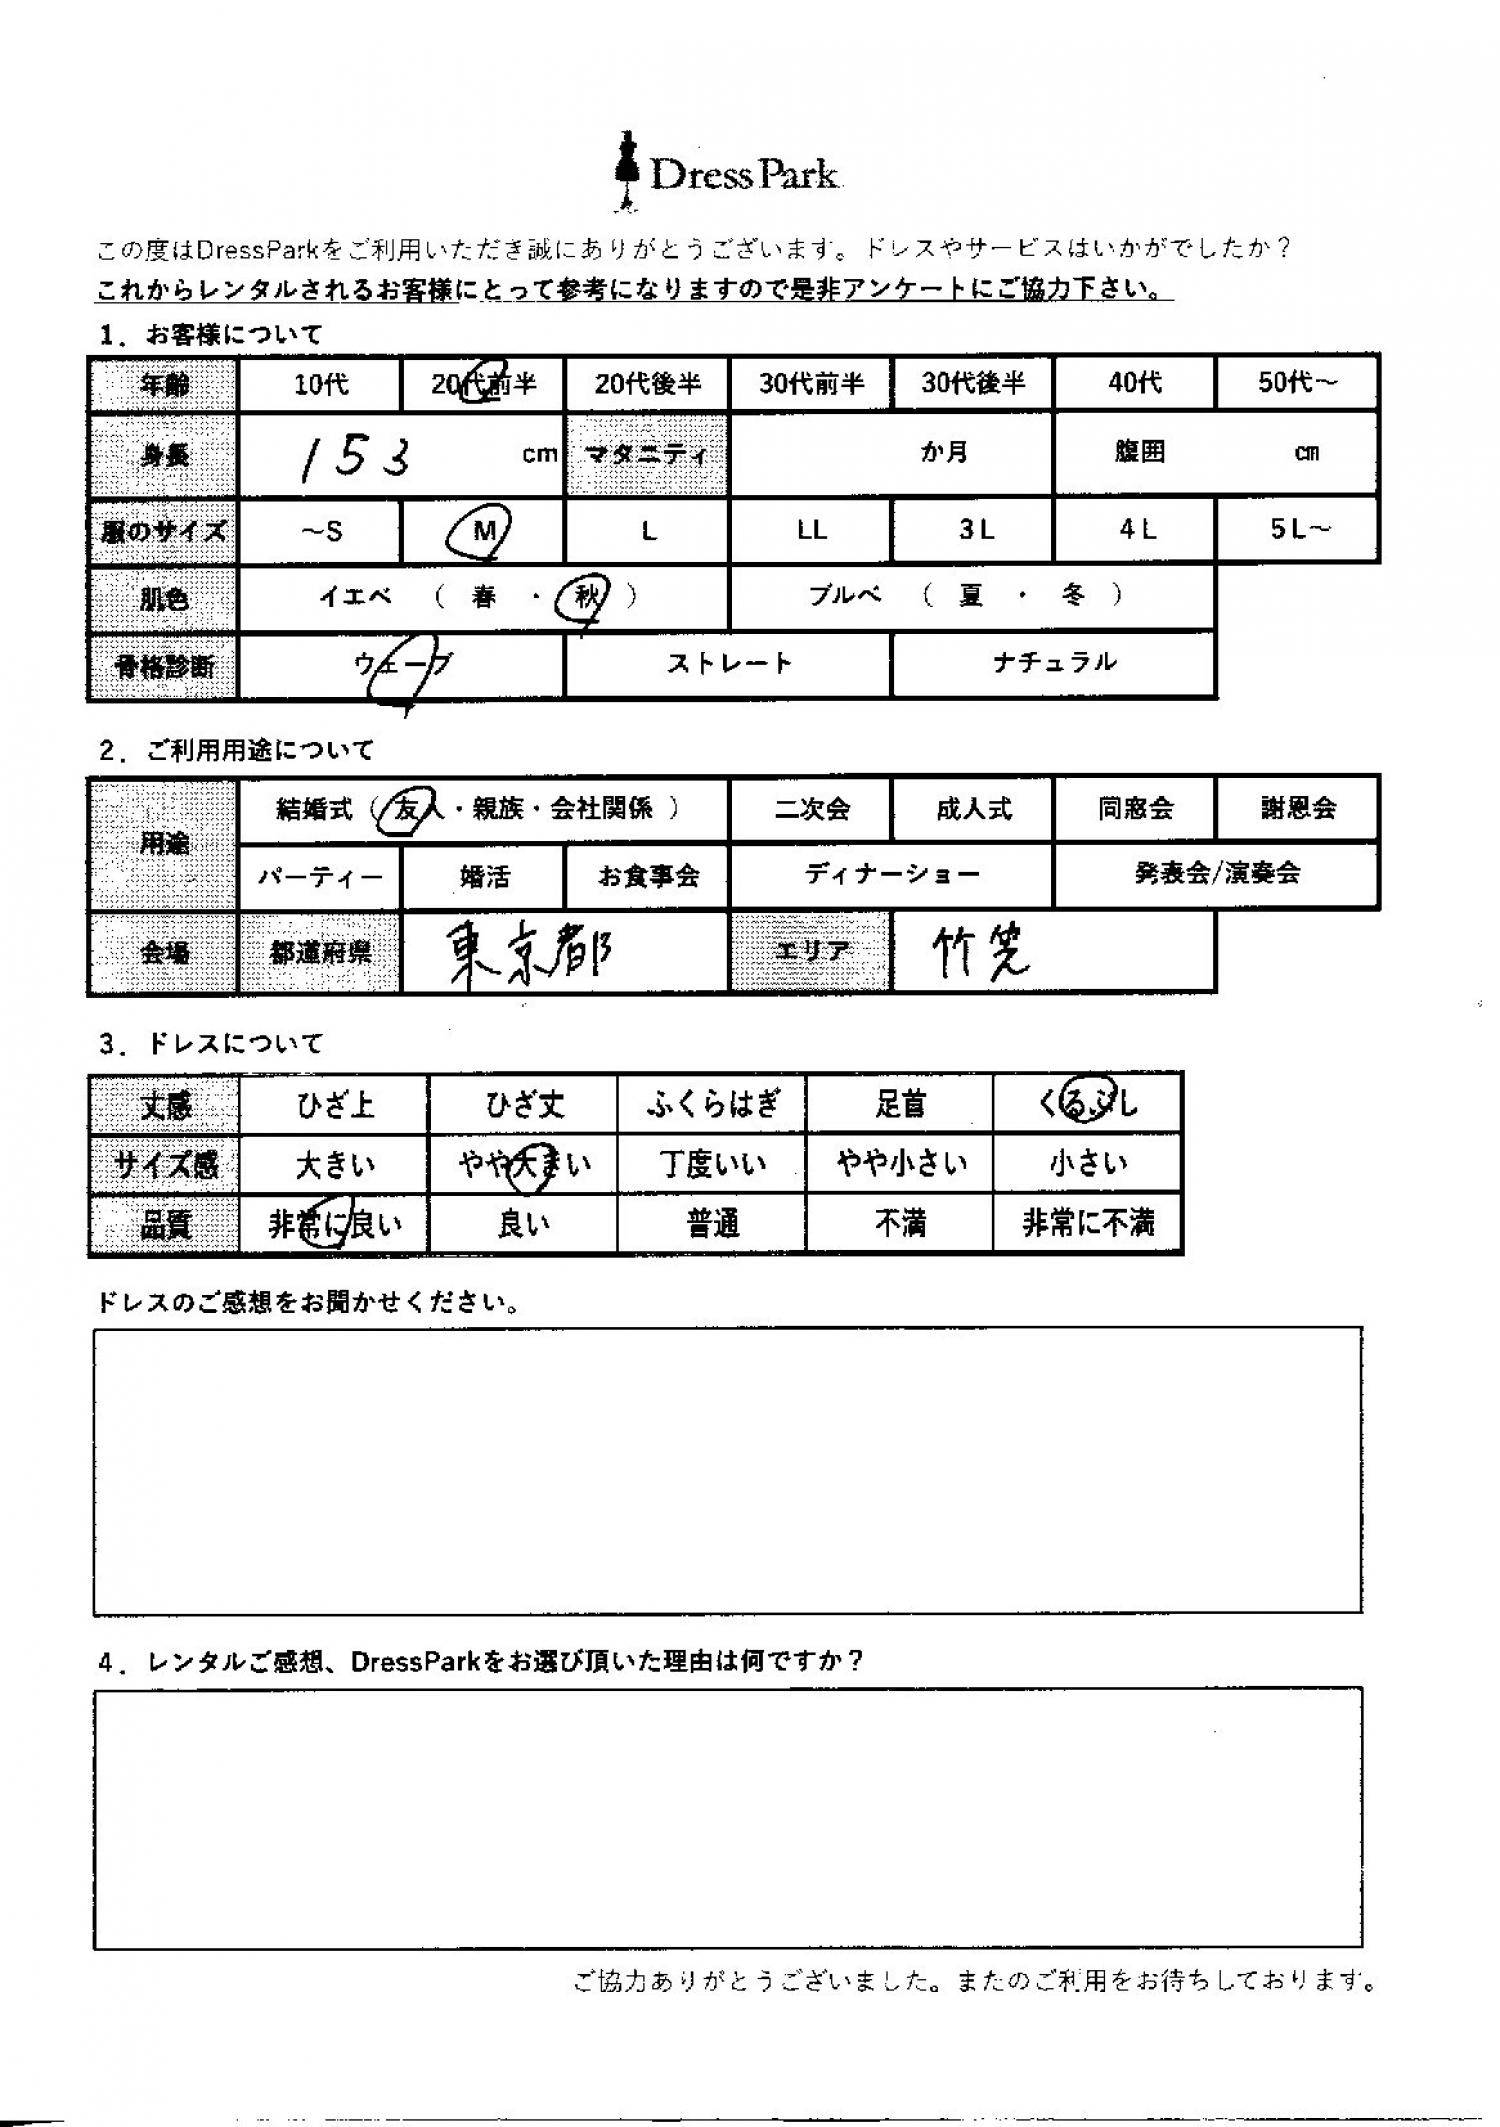 DressPark
この度はDressParkをご利用いただき誠にありがとうございます。ドレスやサービスはいかがでしたか？
これからレンタルされるお客様にとって参考になりますので是非アンケートにご協力下さい。
1．お客様について
年齢 10代 20代前半 20代後半 30代前半 30代後半 40代 50代～
身長 153 cm マタニティ か月 腹囲 cm
服のサイズ ～S M L LL 3L 4L 5L～
肌色 イエベ （ 春 ・ 秋 ） ブルベ （ 夏 ・ 冬 ）
骨格診断 ウェーブ ストレート ナチュラル
2．ご利用用途について
用途 結婚式（友人・親族・会社関係） 二次会 成人式 同窓会 謝恩会
パーティー 婚活 お食事会 ディナーショー 発表会/演奏会
会場 都道府県 東京都 エリア 竹芝
3．ドレスについて
丈感 ひざ上 ひざ丈 ふくらはぎ 足首 くるぶし
サイズ感 大きい やや大きい 丁度いい やや小さい 小さい
品質 非常に良い 良い 普通 不満 非常に不満
ドレスのご感想をお聞かせください。
4．レンタルご感想、DressParkをお選び頂いた理由は何ですか？
ご協力ありがとうございました。またのご利用をお待ちしております。